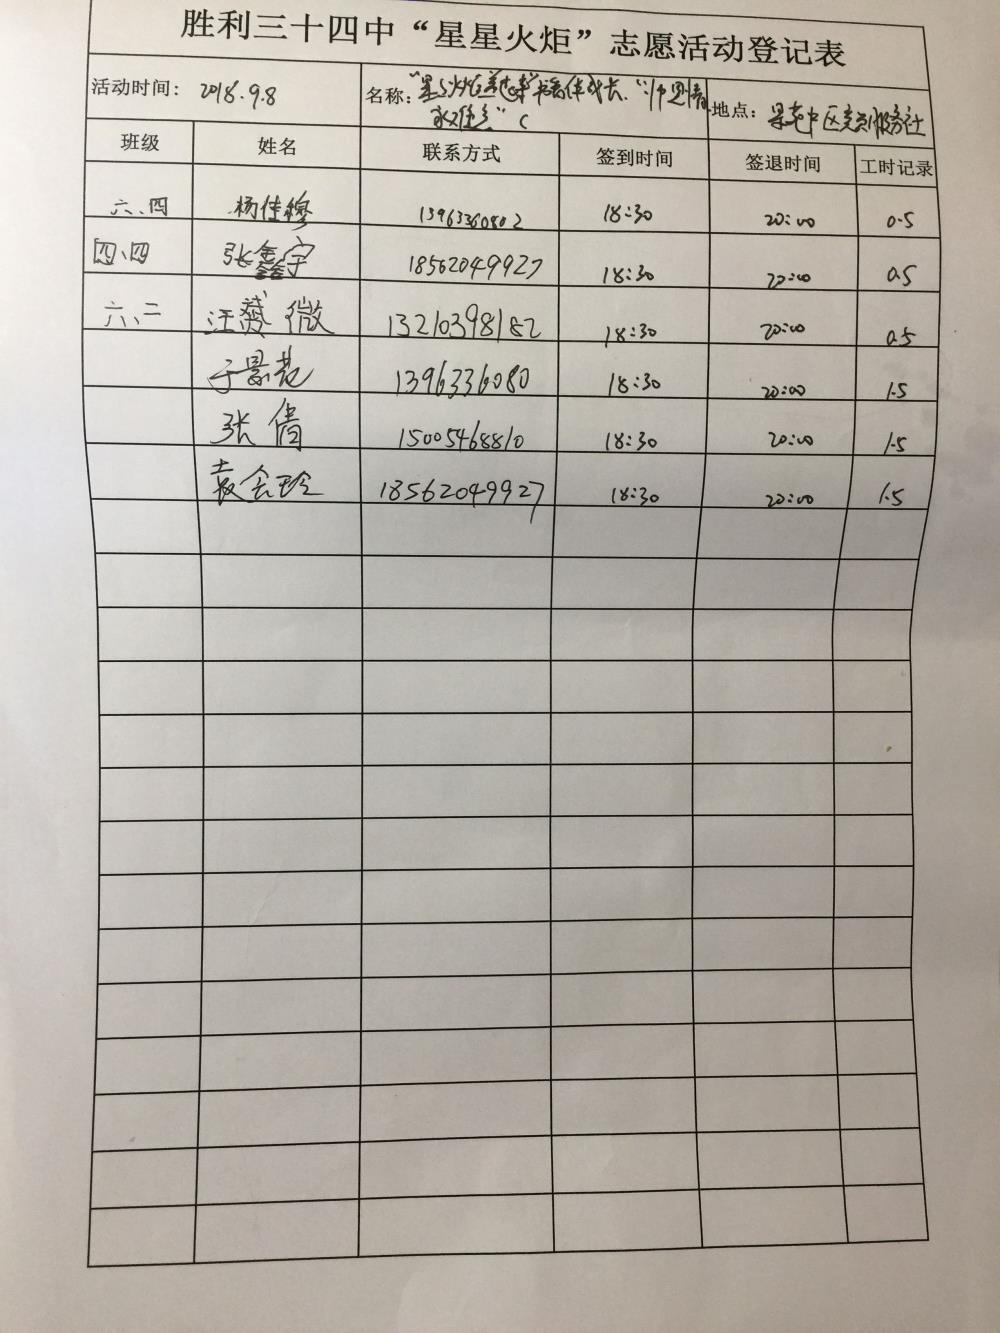 胜利三十四中“星星火炬”志愿活动登记表
活动时间： 2018.9.8 名称： 书香伴成长.“师恩情 地点：
班级 姓名 联系方式 签到时间 签退时间 工时记录
六、四 杨佳穆 13963360802 18:30 20:00 0.5
四、四 张鑫宇 18562049927 18:30 20:00 0.5
六、二 汪 微 13210398182 18:30 20:00 0.5
于景花 1396336080 18:30 20:00 1.5
张倩 15005468810 18:30 20:00 1.5
袁会玲 18562049927 18:30 20:00 1.5